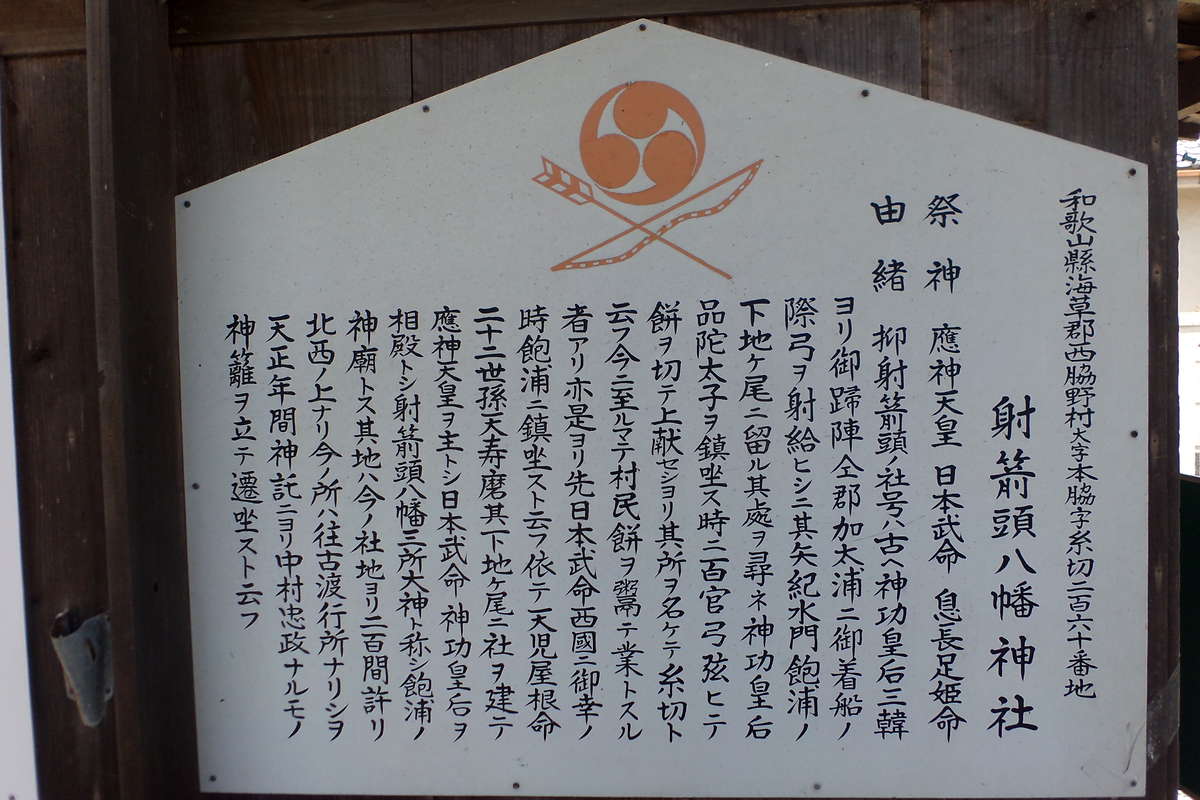 和歌山縣海草郡西脇野村大字本脇字糸切二百六十番地
射箭頭八幡神社
祭神 應神天皇 日本武命 息長足姫命
由緒 抑射箭頭ノ社号ハ古ヘ神功皇后三韓
ヨリ御歸陣仝郡加太浦ニ御着船ノ
際弓ヲ射給ヒシニ其矢紀水門飽浦ノ
下地ケ尾ニ留ル其處ヲ尋ネ神功皇后
品陀太子ヲ鎮坐ス時ニ百官弓弦ヒテ
餅ヲ切テ上献セシヨリ其所ヲ名ケテ糸切ト
云フ今ニ至ルマテ村民餅ヲ鬻テ業トスル
者アリ亦是ヨリ先日本武命西國ニ御幸ノ
時飽浦ニ鎮坐スト云フ依テ天児屋根命
二十二世孫天寿磨其下地ケ尾ニ社ヲ建テ
應神天皇ヲ主トシ日本武命 神功皇后ヲ
相殿トシ射箭頭八幡三所大神ト称シ飽浦ノ
神廟トス其地ハ今ノ社地ヨリ二百間許リ
北西ノ上ナリ今ノ所ハ往古渡行所ナリシヲ
天正年間神託ニヨリ中村忠政ナルモノ
神籬ヲ立テ遷坐スト云フ